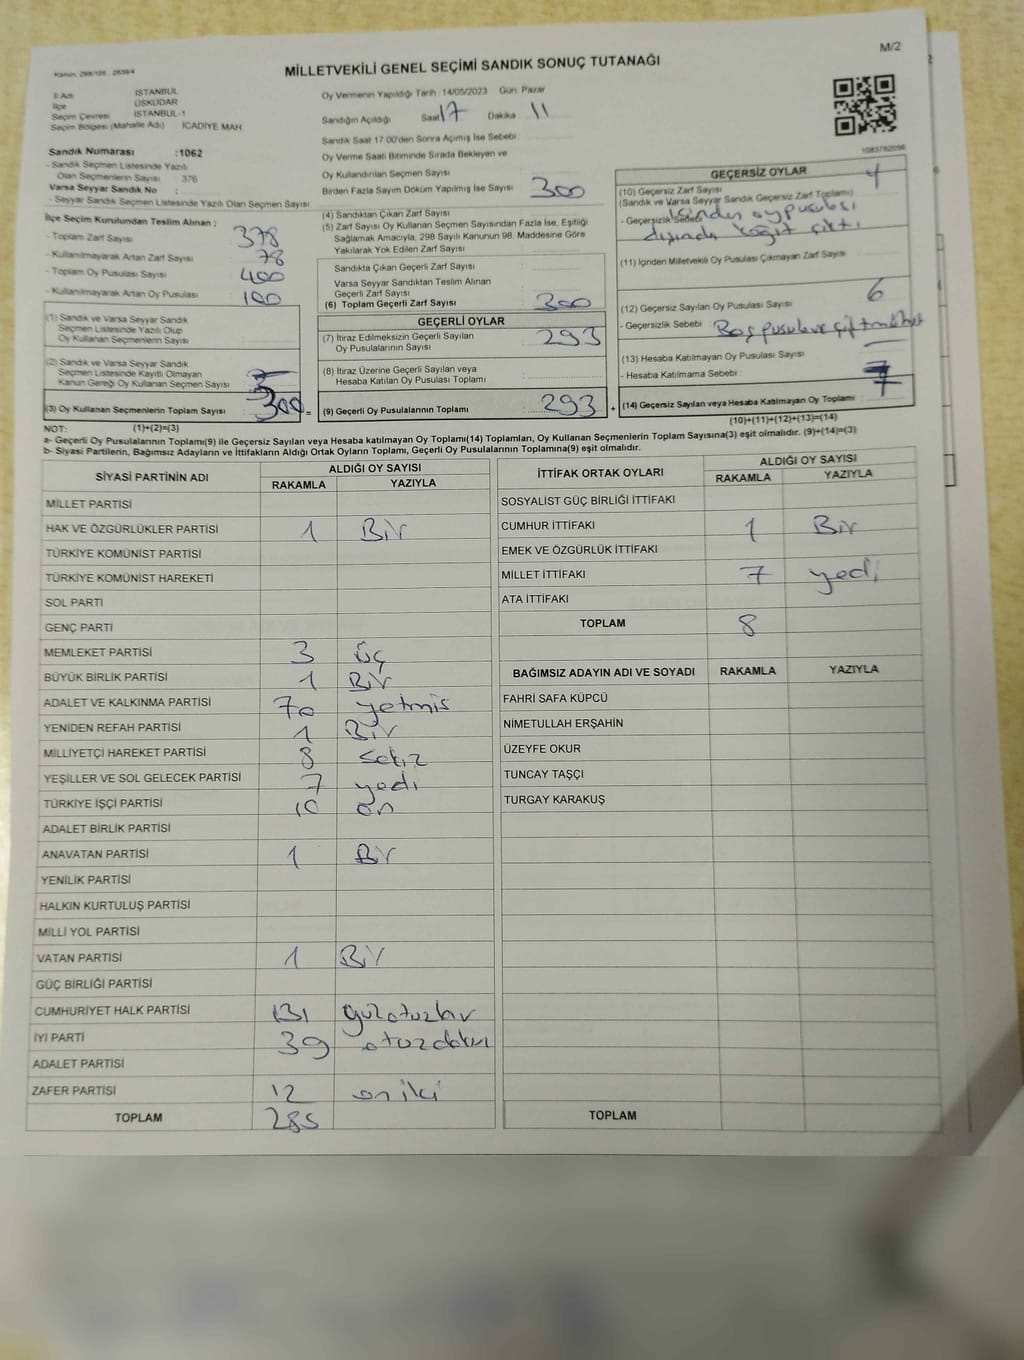 M/2
Kanun, 298/105 , 2839/4
MİLLETVEKİLİ GENEL SEÇİMİ SANDIK SONUÇ TUTANAĞI
İl Adı İSTANBUL
İlçe ÜSKÜDAR
Seçim Çevresi İSTANBUL-1
Seçim Bölgesi (Mahalle Adı) İCADİYE MAH.
Sandık Numarası :1062
- Sandık Seçmen Listesinde Yazılı
Olan Seçmenlerin Sayısı 376
Varsa Seyyar Sandık No :
- Seyyar Sandık Seçmen Listesinde Yazılı Olan Seçmen Sayısı
İlçe Seçim Kurulundan Teslim Alınan :
- Toplam Zarf Sayısı 378
- Kullanılmayarak Artan Zarf Sayısı 78
- Toplam Oy Pusulası Sayısı 400
- Kullanılmayarak Artan Oy Pusulası 100
(1) Sandık ve Varsa Seyyar Sandık
Seçmen Listesinde Yazılı Olup
Oy Kullanan Seçmenlerin Sayısı
(2) Sandık ve Varsa Seyyar Sandık
Seçmen Listesinde Kayıtlı Olmayan
Kanun Gereği Oy Kullanan Seçmen Sayısı
(3) Oy Kullanan Seçmenlerin Toplam Sayısı 300 =
Oy Vermenin Yapıldığı Tarih :14/05/2023 Gün: Pazar
Sandığın Açıldığı Saat 17 Dakika 11
Sandık Saat 17.00'den Sonra Açılmış İse Sebebi :
Oy Verme Saati Bitiminde Sırada Bekleyen ve
Oy Kullandırılan Seçmen Sayısı
Birden Fazla Sayım Döküm Yapılmış İse Sayısı
(4) Sandıktan Çıkan Zarf Sayısı 300
(5) Zarf Sayısı Oy Kullanan Seçmen Sayısından Fazla İse, Eşitliği
Sağlamak Amacıyla, 298 Sayılı Kanunun 98. Maddesine Göre
Yakılarak Yok Edilen Zarf Sayısı
Sandıkta Çıkan Geçerli Zarf Sayısı
Varsa Seyyar Sandıktan Teslim Alınan
Geçerli Zarf Sayısı
(6) Toplam Geçerli Zarf Sayısı 300
GEÇERLİ OYLAR
(7) İtiraz Edilmeksizin Geçerli Sayılan
Oy Pusulalarının Sayısı 293
(8) İtiraz Üzerine Geçerli Sayılan veya
Hesaba Katılan Oy Pusulası Toplamı
(9) Geçerli Oy Pusulalarının Toplamı 293 +
1083782056
GEÇERSİZ OYLAR
(10) Geçersiz Zarf Sayısı
(Sandık ve Varsa Seyyar Sandık Geçersiz Zarf Toplamı)
- Geçersizlik Sebebi : içinden oy pusulası
dışında kağıt çıktı
(11) İçinden Milletvekili Oy Pusulası Çıkmayan Zarf Sayısı
(12) Geçersiz Sayılan Oy Pusulası Sayısı 6
- Geçersizlik Sebebi : Boş pusula ve çift mühür
(13) Hesaba Katılmayan Oy Pusulası Sayısı
- Hesaba Katılmama Sebebi
(14) Geçersiz Sayılan veya Hesaba Katılmayan Oy Toplamı 7
NOT: (1)+(2)=(3) (10)+(11)+(12)+(13)=(14)
a- Geçerli Oy Pusulalarının Toplamı(9) ile Geçersiz Sayılan veya Hesaba katılmayan Oy Toplamı(14) Toplamları, Oy Kullanan Seçmenlerin Toplam Sayısına(3) eşit olmalıdır. (9)+(14)=(3)
b- Siyasi Partilerin, Bağımsız Adayların ve İttifakların Aldığı Ortak Oyların Toplamı, Geçerli Oy Pusulalarının Toplamına(9) eşit olmalıdır.
SİYASİ PARTİNİN ADI ALDIĞI OY SAYISI
RAKAMLA YAZIYLA
MİLLET PARTİSİ
HAK VE ÖZGÜRLÜKLER PARTİSİ 1 Bir
TÜRKİYE KOMÜNİST PARTİSİ
TÜRKİYE KOMÜNİST HAREKETİ
SOL PARTİ
GENÇ PARTİ
MEMLEKET PARTİSİ 3 üç
BÜYÜK BİRLİK PARTİSİ 1 Bir
ADALET VE KALKINMA PARTİSİ 70 yetmis
YENİDEN REFAH PARTİSİ 1 Bir
MİLLİYETÇİ HAREKET PARTİSİ 8 sekiz
YEŞİLLER VE SOL GELECEK PARTİSİ 7 yedi
TÜRKİYE İŞÇİ PARTİSİ 10 on
ADALET BİRLİK PARTİSİ
ANAVATAN PARTİSİ 1 Bir
YENİLİK PARTİSİ
HALKIN KURTULUŞ PARTİSİ
MİLLİ YOL PARTİSİ
VATAN PARTİSİ 1 Bir
GÜÇ BİRLİĞİ PARTİSİ
CUMHURİYET HALK PARTİSİ 131 yüzotuzbir
İYİ PARTİ 39 otuzdokuz
ADALET PARTİSİ
ZAFER PARTİSİ 12 oniki
TOPLAM 285
İTTİFAK ORTAK OYLARI ALDIĞI OY SAYISI
RAKAMLA YAZIYLA
SOSYALİST GÜÇ BİRLİĞİ İTTİFAKI
CUMHUR İTTİFAKI 1 Bir
EMEK VE ÖZGÜRLÜK İTTİFAKI
MİLLET İTTİFAKI 7 yedi
ATA İTTİFAKI
TOPLAM 8
BAĞIMSIZ ADAYIN ADI VE SOYADI RAKAMLA YAZIYLA
FAHRİ SAFA KÜPCÜ
NİMETULLAH ERŞAHİN
ÜZEYFE OKUR
TUNCAY TAŞÇI
TURGAY KARAKUŞ
TOPLAM